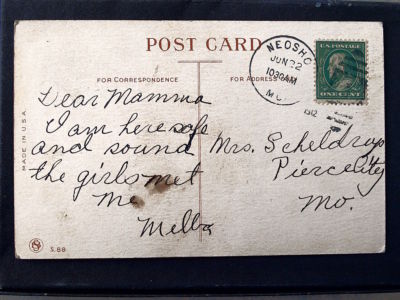 POST CARD
FOR CORRESPONDENCE
FOR ADDRESS
NEOSHO
JUN 22
1030AM
MO.
1912
U.S. POSTAGE
ONE CENT
MADE IN U.S.A.
Dear Mamma
I am here safe
and sound
the girls met
me
Melba
Mrs. Scheldrup
Pierce City
Mo.
S.88